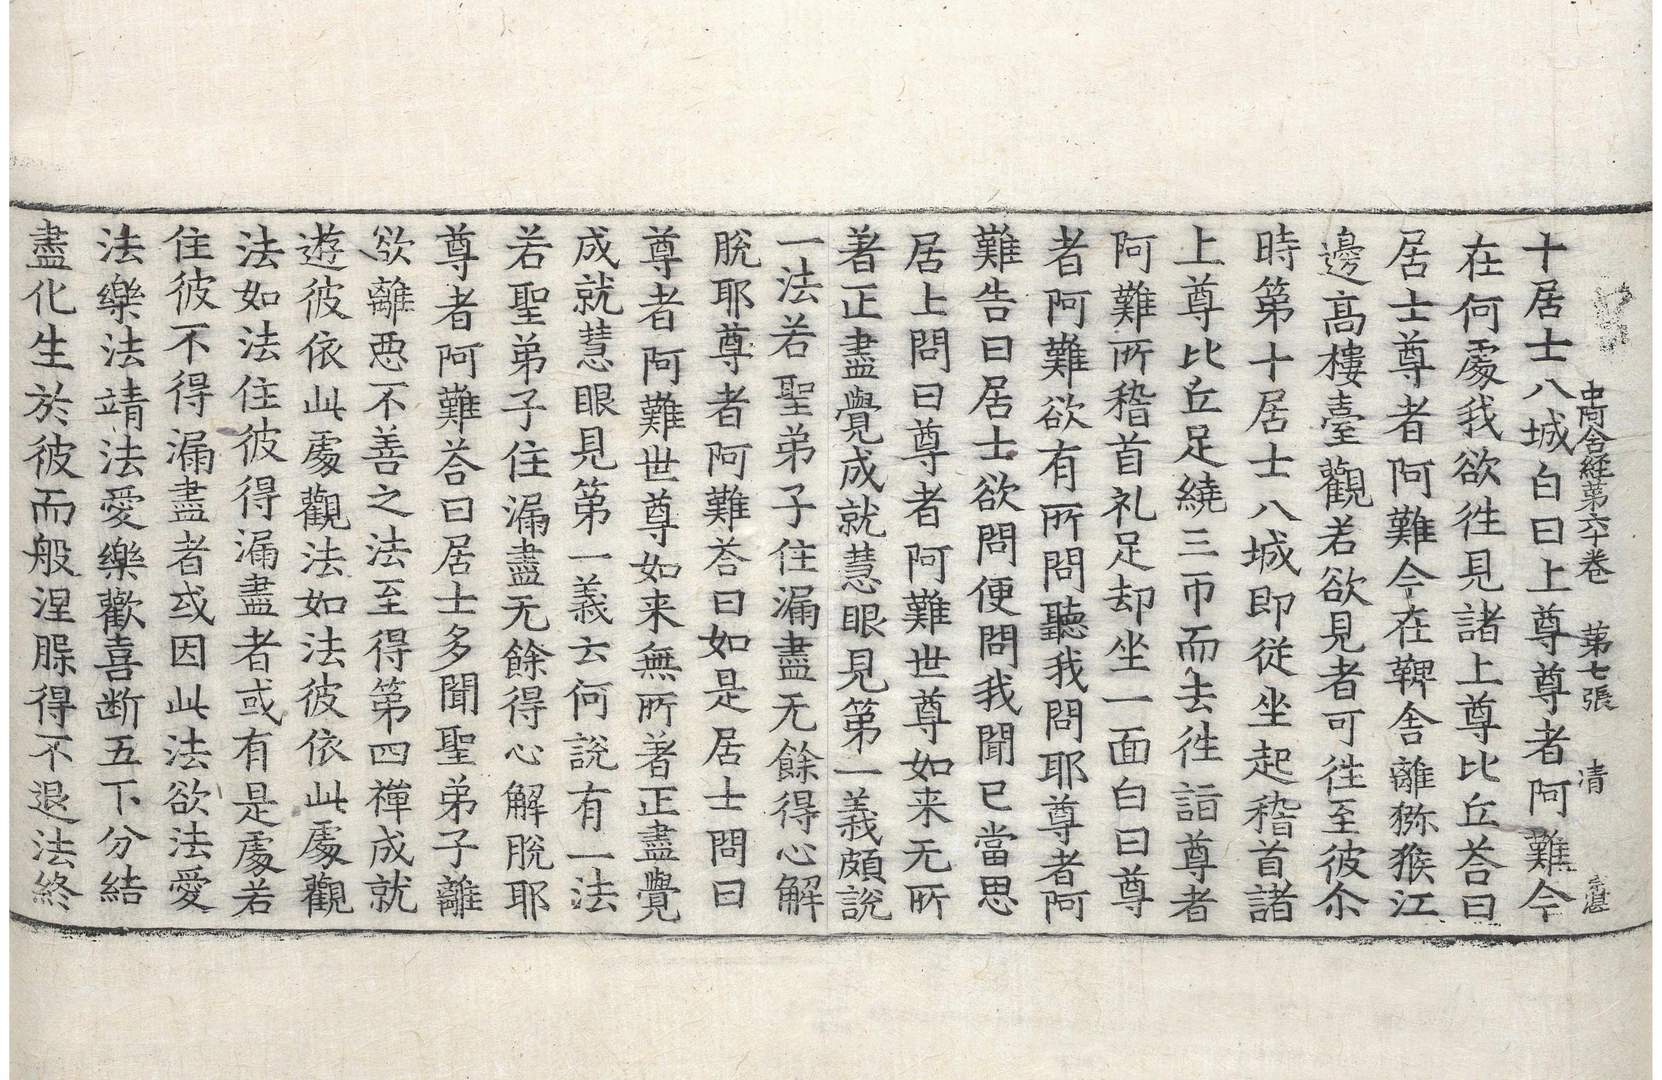 中阿含経第六十卷　第七張　清
十居士八城白曰上尊尊者阿難今
在何處我欲徃見諸上尊比丘荅曰
居士尊者阿難今在鞞舎離猕猴江
邊髙樓臺觀若欲見者可徃至彼尒
時第十居士八城即從坐起稽首諸
上尊比丘足繞三帀而去徃詣尊者
阿難所稽首礼足却坐一面白曰尊
者阿難欲有所問聽我問耶尊者阿
難告曰居士欲問便問我聞已當思
居上問曰尊者阿難世尊如来无所
著正盡覺成就慧眼見第一義頗說
一法若聖弟子住漏盡无餘得心解
脫耶尊者阿難荅曰如是居士問曰
尊者阿難世尊如来無所著正盡覺
成就慧眼見第一義云何說有一法
若聖弟子住漏盡无餘得心解脫耶
尊者阿難荅曰居士多聞聖弟子離
欲離惡不善之法至得第四禪成就
遊彼依此處觀法如法彼依此處觀
法如法住彼得漏盡者或有是處若
住彼不得漏盡者或因此法欲法愛
法樂法靖法愛樂歡喜断五下分結
盡化生於彼而般涅槃得不退法終